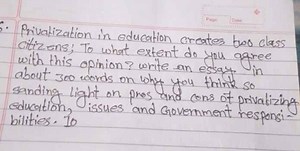 5. Privatization in education creates two class
citizens; To what extent do you agree
with this opinion? write an essay in
about 300 words on why you think so
sanding light on pros and cons of privatizing
education, issues and Government responsi-
bilities. To